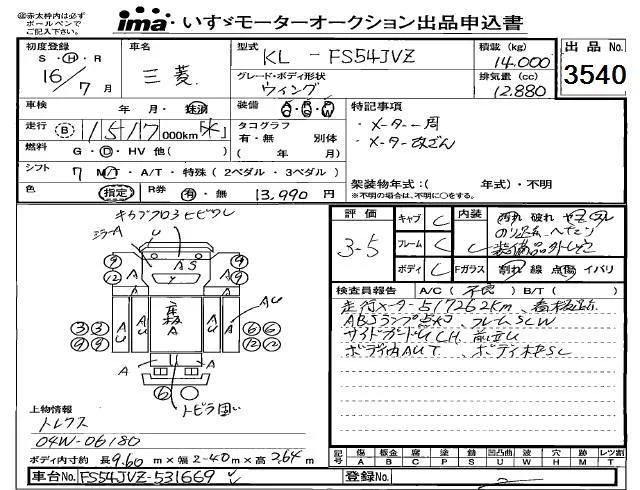 ㊟赤太枠内は必ず
ボールペンで
ご記入下さい。
ima・いすゞモーターオークション出品申込書
初度登録 S・H・R 16/7月
車名 三菱
型式 KL－FS54JVZ
グレード・ボディ形状 ウィング
積載(kg) 14.000
排気量(cc) 12.880
出品No. 3540
車検 年 月・抹消
装備 AC PS PW
走行 B 1517 000km
タコグラフ 有・無 別体
( 年 月)
燃料 G・D・HV 他( )
シフト 7 MT・A/T・特殊(2ペダル・3ペダル)
色 指定 R券 有・無 13,990円
特記事項
・メーター一周
・メーター改ざん
架装物年式:( 年式)・不明
※不明の場合は、不明に○をする。
キャブフロスヒビワレ
ミラーA U
9 12 AS 9 12
3 3 9 9 A U 座板A U A AU 6 6 12 12
A A
6 トビラ固い
評価 3-5
キャブ C
フレーム C
ボディ C
内装 C
Fガラス
汚れ 破れ ヤニ
割れ 線 点傷 イバリ
検査員報告 A/C(不良) B/T( )
走行メーター517262km、看板跡
ABSランプ点灯 フレームSCW
サイドガードU CH. 前立U
ボディ内AUT. ボディ下SC
上物情報
トレクス
04W-06180
ボディ内寸約 長9.60m×幅2.40m×高2.64m
記号 傷A 板金B 腐C 塗P 錆S 凹凸曲U 波W 穴H 跡M レツ割T
車台No. FS54JVZ-531669
登録No.